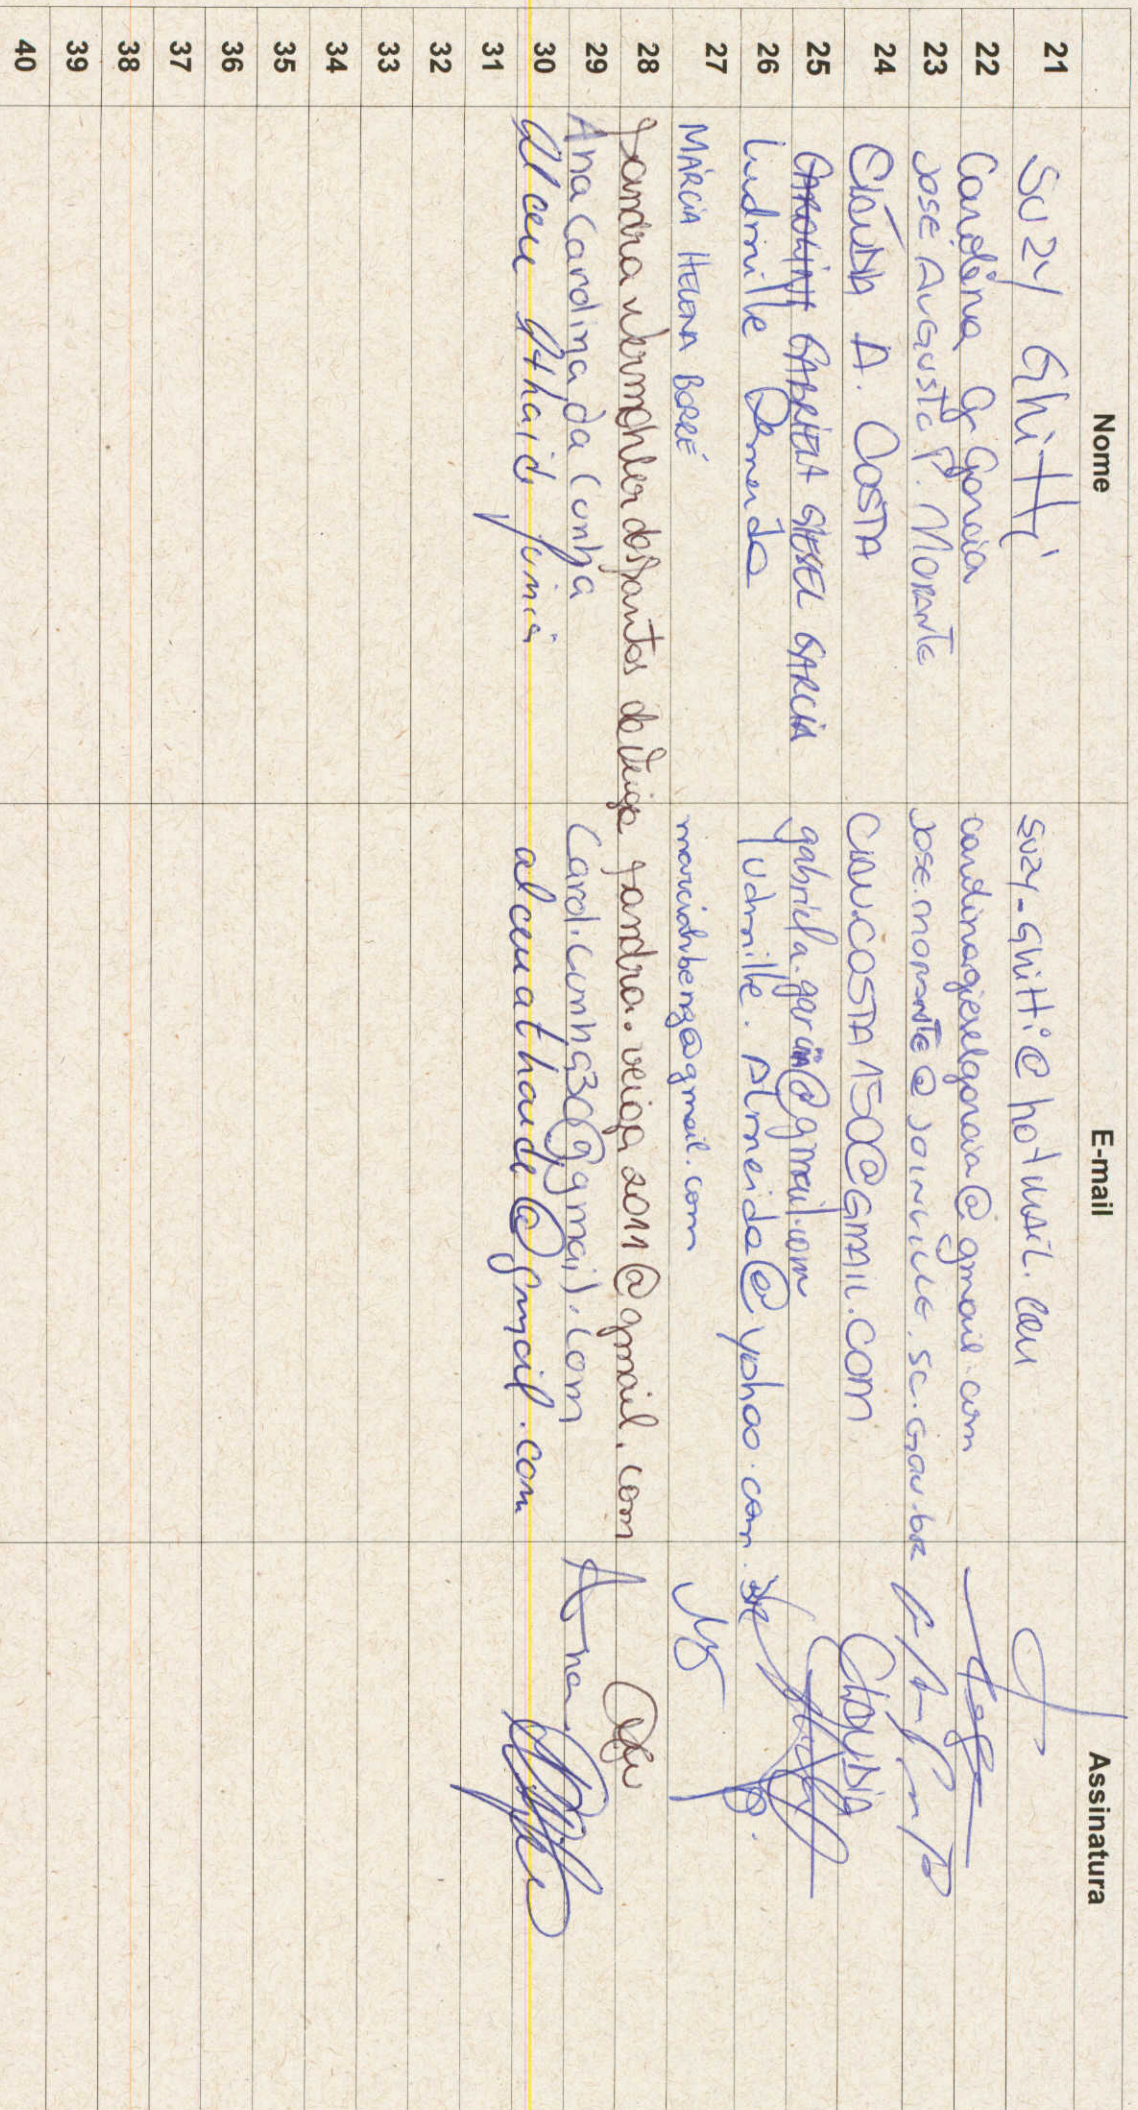 Nome E-mail Assinatura
21 Suzy Ghitti suzy-ghitti@hotmail.com
22 Carolina G. Garcia carolinagieselgarcia@gmail.com
23 José Augusto P. Morante jose.morante@joinville.sc.gov.br
24 Cláudia A. Costa CLAU.COSTA150@GMAIL.COM CLAUDIA
25 GABRIELA GIESEL GARCIA gabriela.garcia@gmail.com
26 Ludmille Almeida ludmille.Almeida@yahoo.com.br
27 MÁRCIA HELENA BORRÉ marciahbeng@gmail.com
28 Sandra Wermohler dos Santos da Veiga sandra.veiga2011@gmail.com
29 Ana Carolina da Cunha Carol.cunha30@gmail.com Ana
30 Alceu Athaide Junior alceuathaide@gmail.com
31
32
33
34
35
36
37
38
39
40